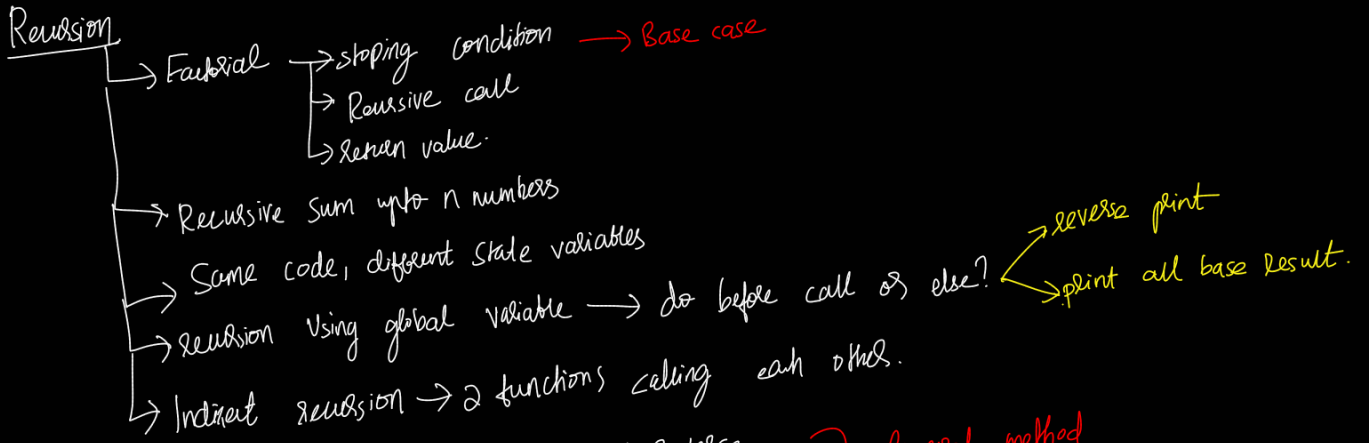 Recursion
Factorial → stoping condition → Base case
→ Recursive call
→ return value.
→ Recursive sum upto n numbers
→ Same code, different state variables
→ recursion using global variable → do before call or else? → reverse print
→ print all base result.
→ Indirect recursion → 2 functions calling each other.
method